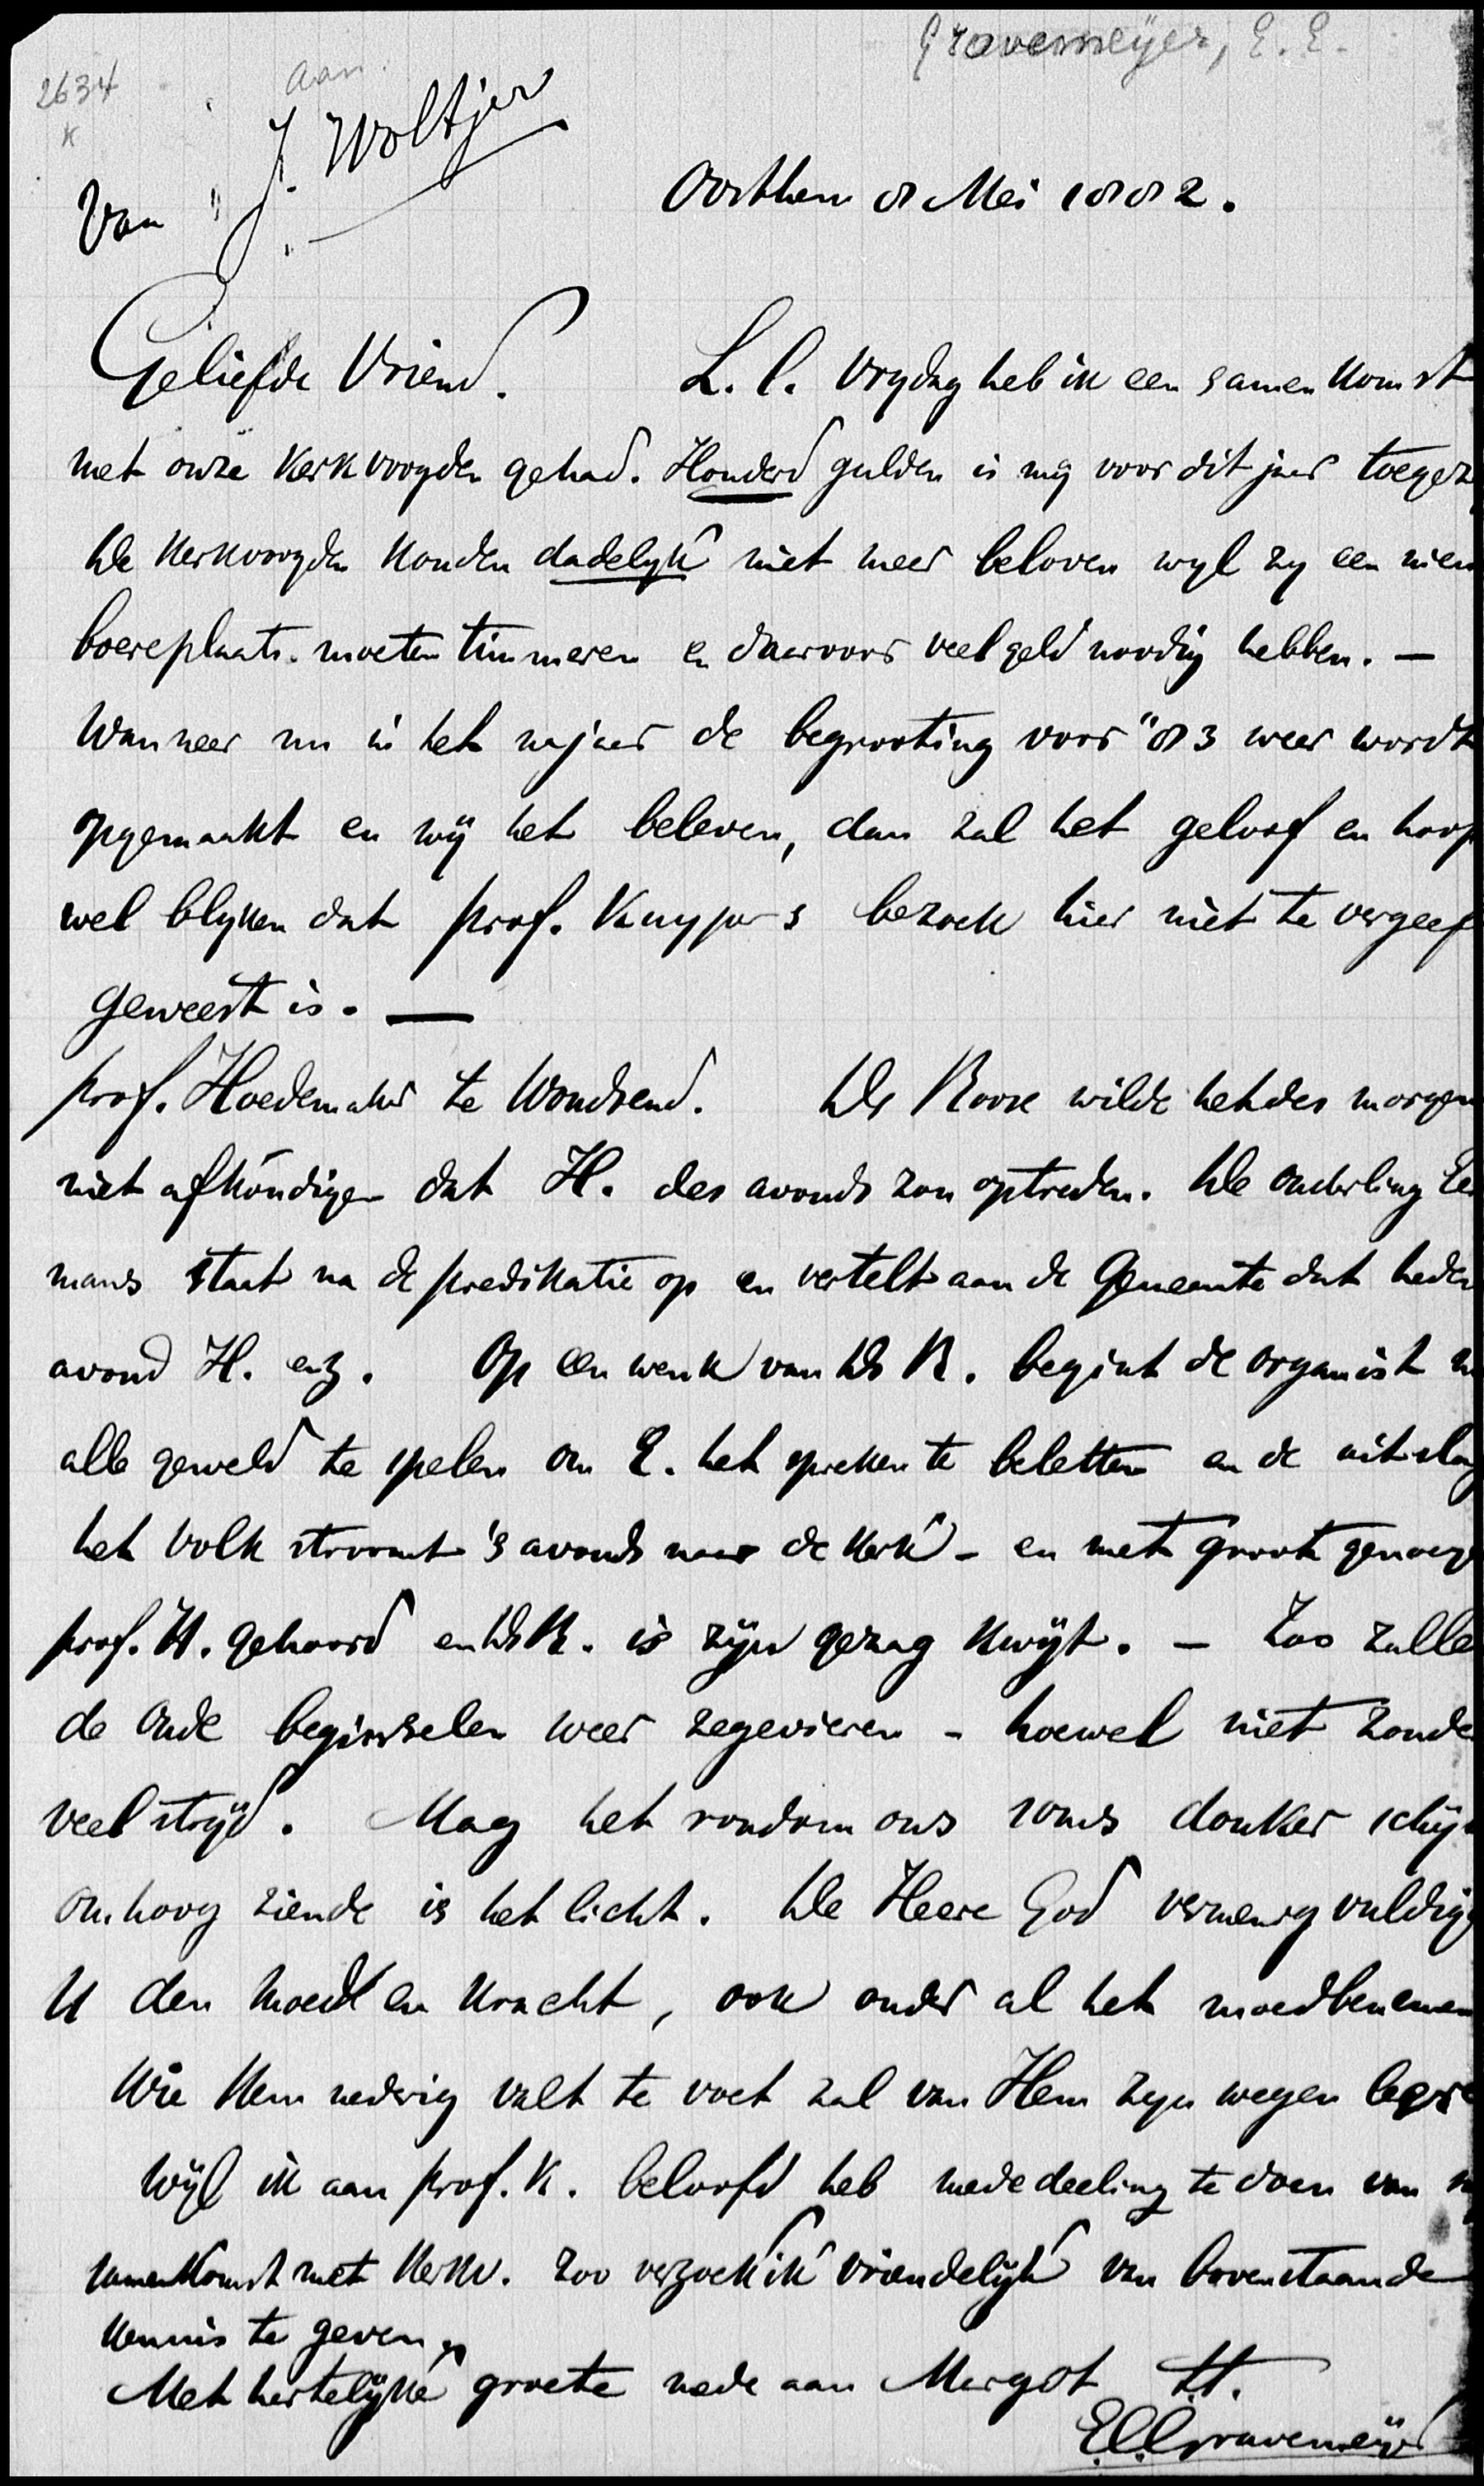 Gravemeijer, E. E.
2634
K
aan
J. Woltjer
Van "
Oosthem 8 Mei 1882.
Geliefde Vriend. L.l. Vrydag heb ik een samenkomst
met onze Kerkvoogden gehad. Honderd gulden is mij voor dit jaar toegez
De Kerkvoogden konden dadelyk niet meer beloven wyl zy een nieu
boereplaats moeten timmeren en daarvoor veel geld noodig hebben. —
Wanneer nu in het najaar de begrooting voor "83 weer wordt
opgemaakt en wij het beleven, dan zal het geloof en hoop
wel blyken dat prof. Kuypers bezoek hier niet te vergeef
geweest is. —
prof. Hoedemaker te Woudsend. Ds Roose wilde het des morgen
niet afkondigen dat H. des avonds zou optreden. De ouderling
mans staat na de predikatie op en vertelt aan de Gemeente dat heden
avond H. enz. Op een wenk van Ds R. begint de organist
alle geweld te spelen om E. het spreken te beletten en de uitslag
het volk stroomt 's avonds naar de Kerk - en met groot genoeg
prof. H. gehoord en Ds R. is zijn gezag kwijt. — Zoo zulle
de oude beginselen weer zegevieren - hoewel niet zonde
veel strijd. Mag het rondom ons soms donker schij
omhoog ziende is het licht. De Heere God vermenigvuldig
U den moed en kracht, ook onder al het moedbenemen
Wie Hem nedrig valt te voet zal van Hem zyn wegen leer
Wijl ik aan prof. K. beloofd heb mededeeling te doen van
samenkomst met Kerkv. zoo verzoek ik vriendelijk van bovenstaande
kennis te geven.
Met hartelijke groete mede aan Margot t.t.
E.E. Gravemeijer